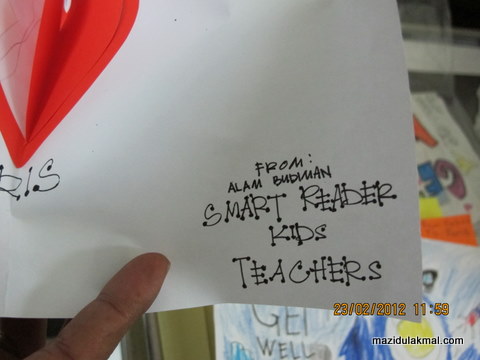 RIS
FROM:
ALAM BUDMAN
SMART READER
KIDS
TEACHERS
23/02/2012 11:59
mazidulakmal.com
GET
WELL